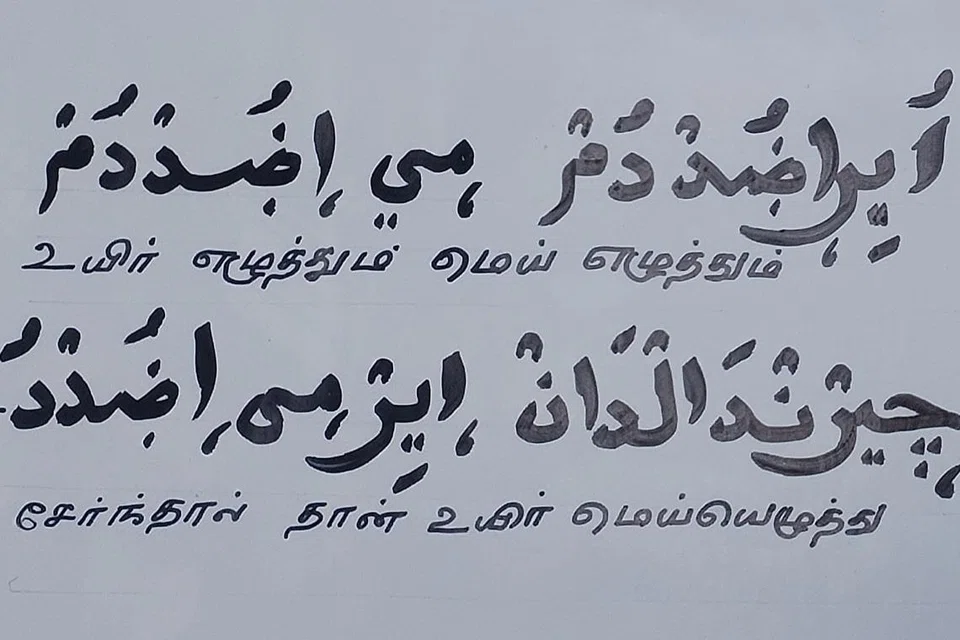 اُيِرْاِضُدْدُمْ مِيْ اِضُدْدُمْ
உயிர் எழுத்தும் மெய் எழுத்தும்
چِيرْنْدَالْدَانْ اِيِرْ مِيِ اِضُدْدُ
சேர்ந்தால் தான் உயிர் மெய்யெழுத்து